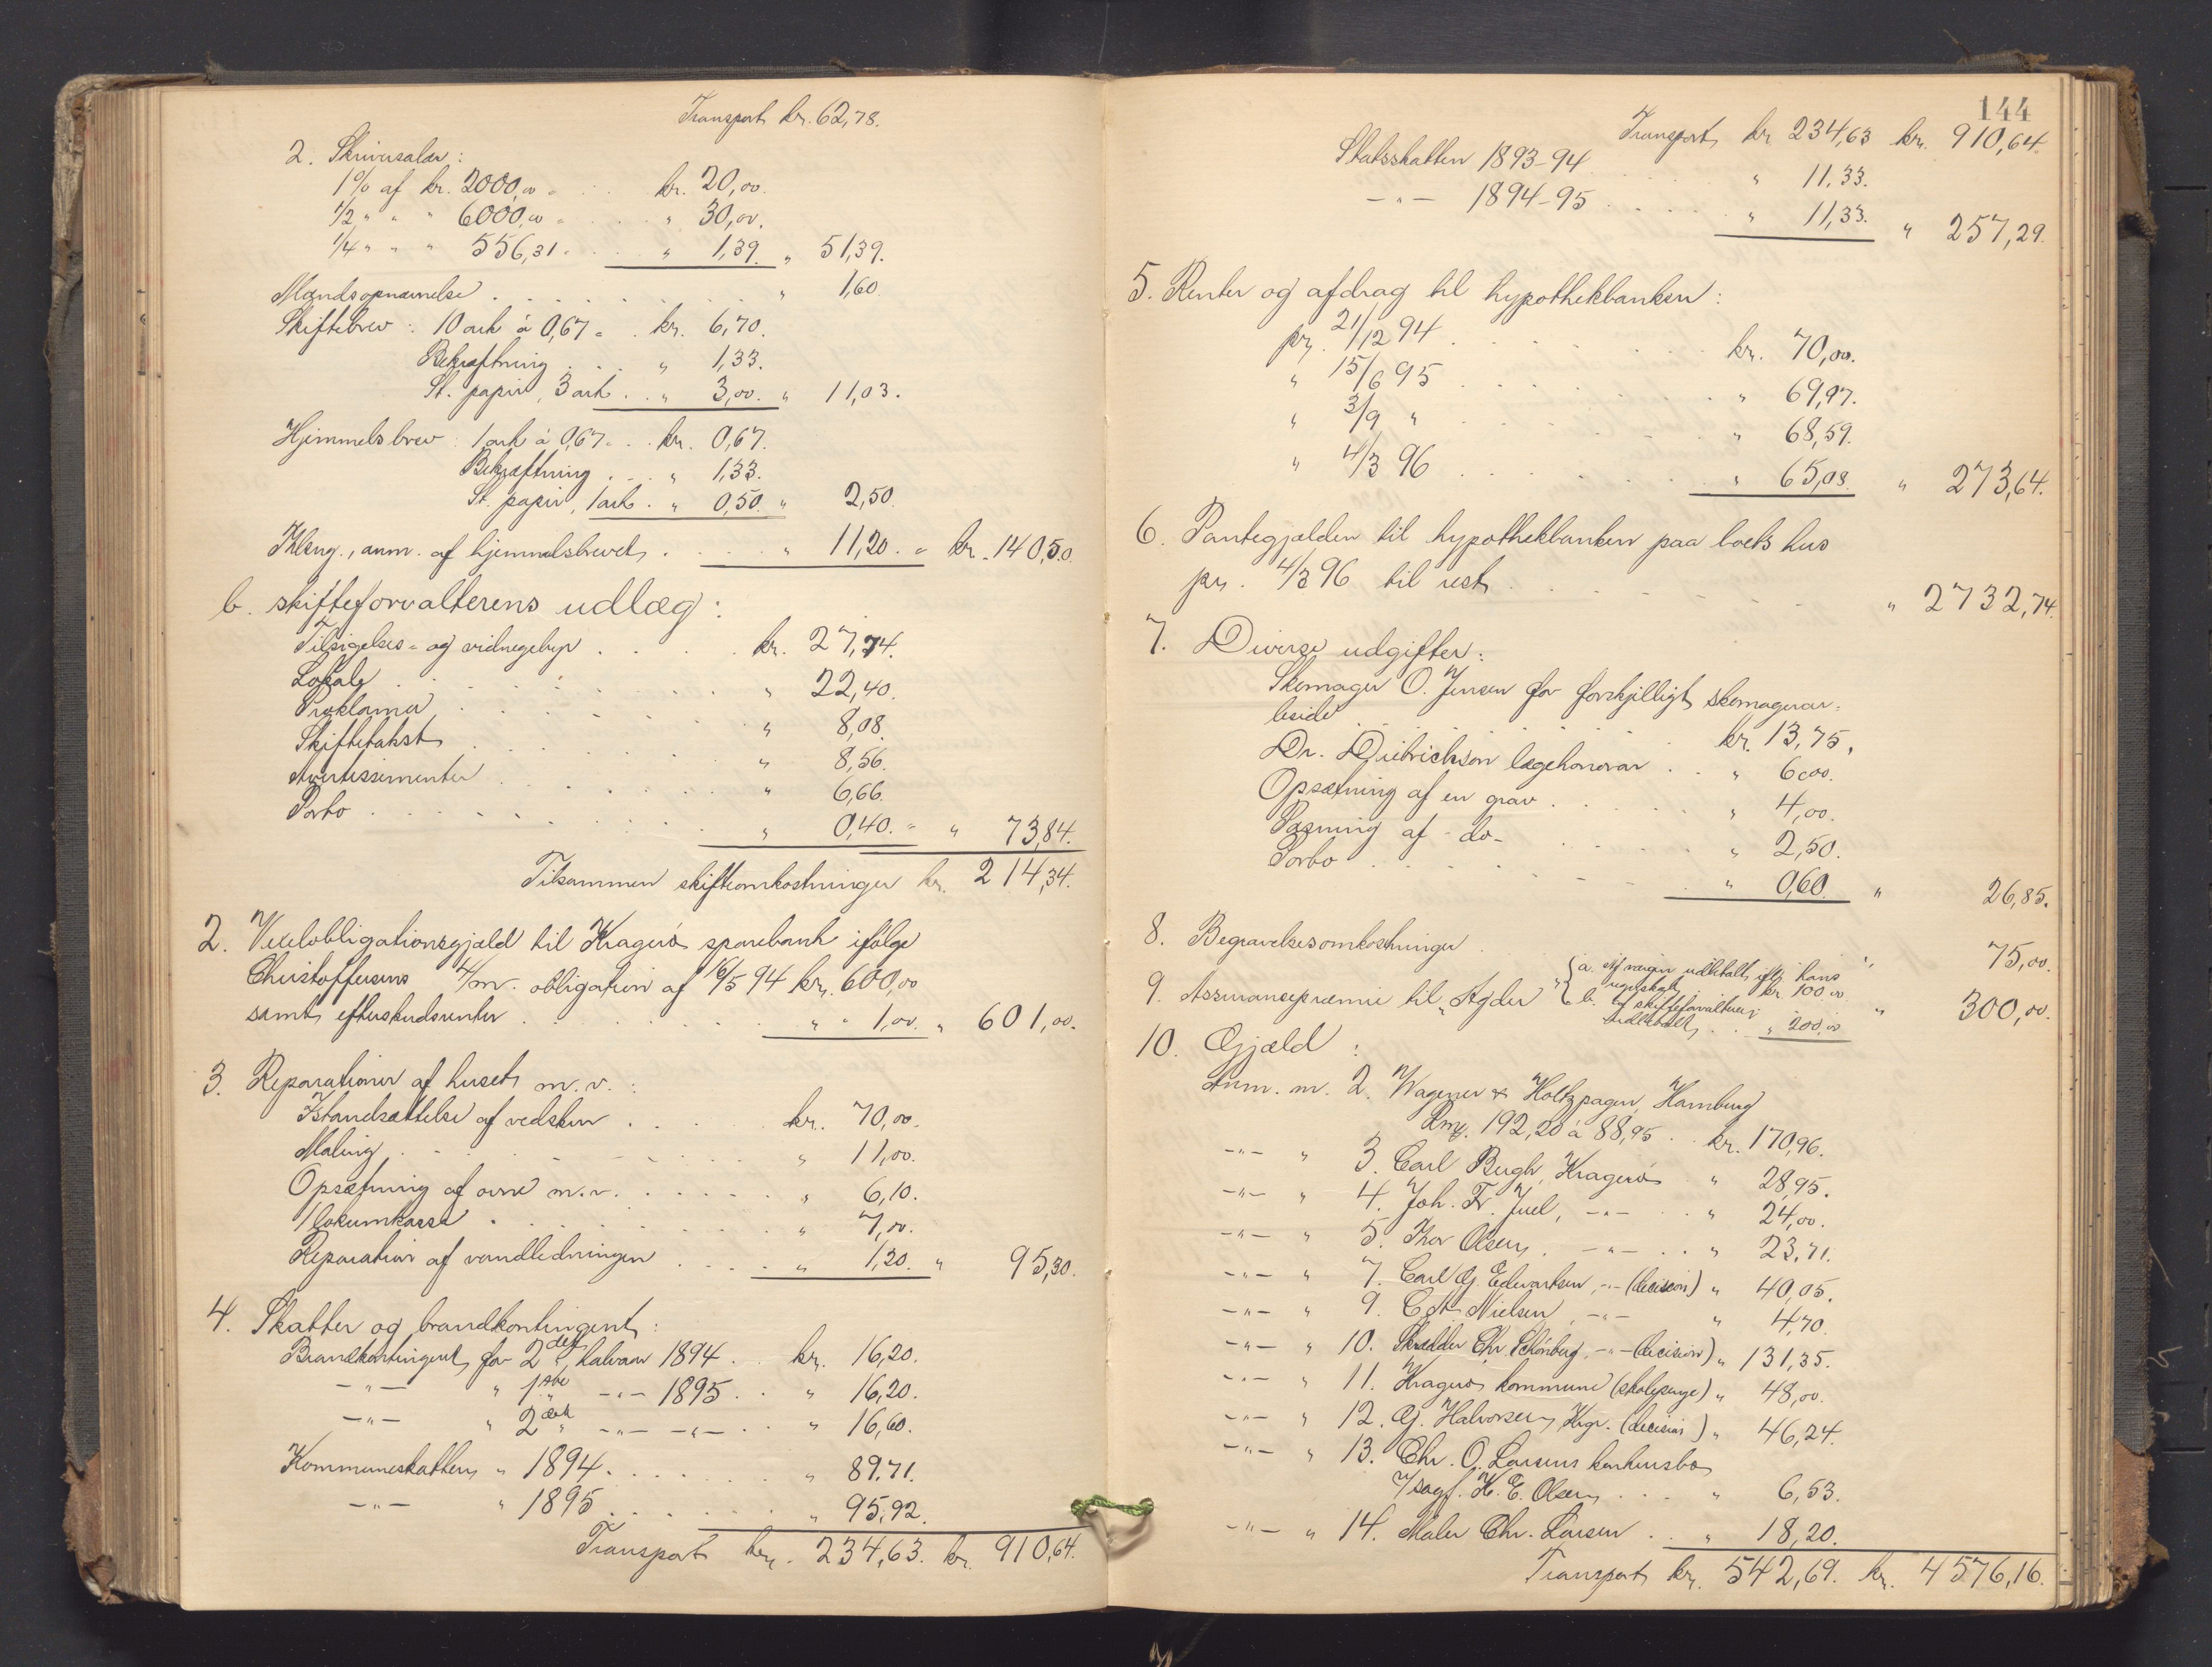 Transport kr. 62,78.
2. Skriversalær:
1% af kr. 2000,00 = . . kr. 20,00.
1/2 " " " 6000,00 = . . . " 30,00.
1/4 " " " 556,31 = . . . " 1,39. " 51,39.
Mandsopnævnelse . . . . . . . . " 1,60.
Skiftebrev: 10 ark à 0,67 = . kr. 6,70.
Bekræftning . . . " 1,33.
St. papir, 3 ark . . " 3,00. " 11,03.
Hjemmelsbrev: 1 ark à 0,67 = . . kr. 0,67.
Bekræftning . . . " 1,33.
St. papir, 1 ark . " 0,50. " 2,50.
Thlæsn., anm. af hjemmelsbrevet . . . . . " 11,20. = kr. 140,50.
b. skifteforvalterens udlæg:
Tilsigelses- og vidnegebyr . . . . . kr. 27,74.
Lokale . . . . . . . . . " 22,40.
Proklama . . . . . . . . " 8,08.
Skiftetakst . . . . . . . " 8,56.
Avertissementer . . . . . . . " 6,66.
Porto . . . . . . . . . " 0,40. = " 73,84.
Tilsammen skifteomkostninger kr. 214,34.
2. Vexelobligationsgjæld til Kragerø sparebank ifølge
Christoffersens 4/m. obligation af 16/5 94 kr. 600,00
samt efterskudsrenter . . . . . . . " " 1,00. " 601,00.
3. Reparationer af huset m. v.:
Istandsættelse af vedskur . . . . kr. 70,00.
Maling . . . . . . . . " 11,00.
Opsætning af ovne m. v. . . . . . " 6,10.
1 lokumkasse . . . . . . . " 7,00.
Reparation af vandledningen . . . . " 1,20. " 95,30.
4. Skatter og brandkontingent:
Brandkontingent for 2det halvaar 1894 . . kr. 16,20.
-"- " 1ste -"- 1895 . . " 16,20.
-"- " 2det -"- -"- . . " 16,60.
Kommuneskatten " 1894 . . . . . . . " 89,71.
-"- " 1895 . . . . . . " 95,92.
Transport kr. 234,63. kr. 910,64.
144
Transport kr. 234,63 kr. 910,64.
Statsskatten 1893-94 . . . . . " 11,33.
-"- 1894-95 . . . . . " 11,33. " 257,29.
5. Renter og afdrag til hypothekbanken:
pr. 21/12 94 . . . . . . . kr. 70,00.
" 15/6 95 . . . . . . . " 69,97.
" 3/9 " . . . . . . . " 68,59.
" 4/3 96 . . . . . . . " 65,08. " 273,64.
6. Pantegjælden til hypothekbanken paa boets hus
pr. 4/3 96 til rest . . . . . . . . " 2732,74.
7. Diverse udgifter:
Skomager O. Jensen for forskjelligt skomagerar-
beide . . . . . . . . kr. 13,75.
Dr. Dietrichson lægehonorar . . " 6,00.
Opsætning af en grav . . . . . " 4,00.
Pasning af -do- . . . . . " 2,50.
Porto . . . . . . . . . " 0,60. " 26,85.
8. Begravelsesomkostninger " 75,00.
9. Assurancepræmie til "Agder" { a. Af værgen udbetalt ifølge hans
regnskab kr. 100,00
b. af skifteforvalteren
udbetalt . . " 200,00 " 300,00.
10. Gjæld:
Anm. nr. 2. Wagener & Holtzpagen, Hamburg
Rmk. 192,20 à 88,95 . . kr. 170,96.
-"- " 3. Carl Bugh, Kragerø . . " 28,95.
-"- " 4. Joh. Fr. Juel, -"- . . " 24,00.
-"- " 5. Thor Olsen, -"- . . " 23,71.
-"- " 7. Carl G. Edvartsen, -"- (decision) " 40,05.
-"- " 9. C. A. Nielsen, -"- " 4,70.
-"- " 10. Skrædder Chr. Schønberg, -"- (decision) " 131,35.
-"- " 11. Kragerø kommune (skolepenge) " 48,00.
-"- " 12. G. Halvorsen, Krgr. (decision) " 46,24.
-"- " 13. Chr. O. Larsens konkursbo
v/sagf. K. E. Olsen . . . " 6,53.
-"- " 14. Maler Chr. Larsen . . " 18,20.
Transport kr. 542,69. kr. 4576,16.